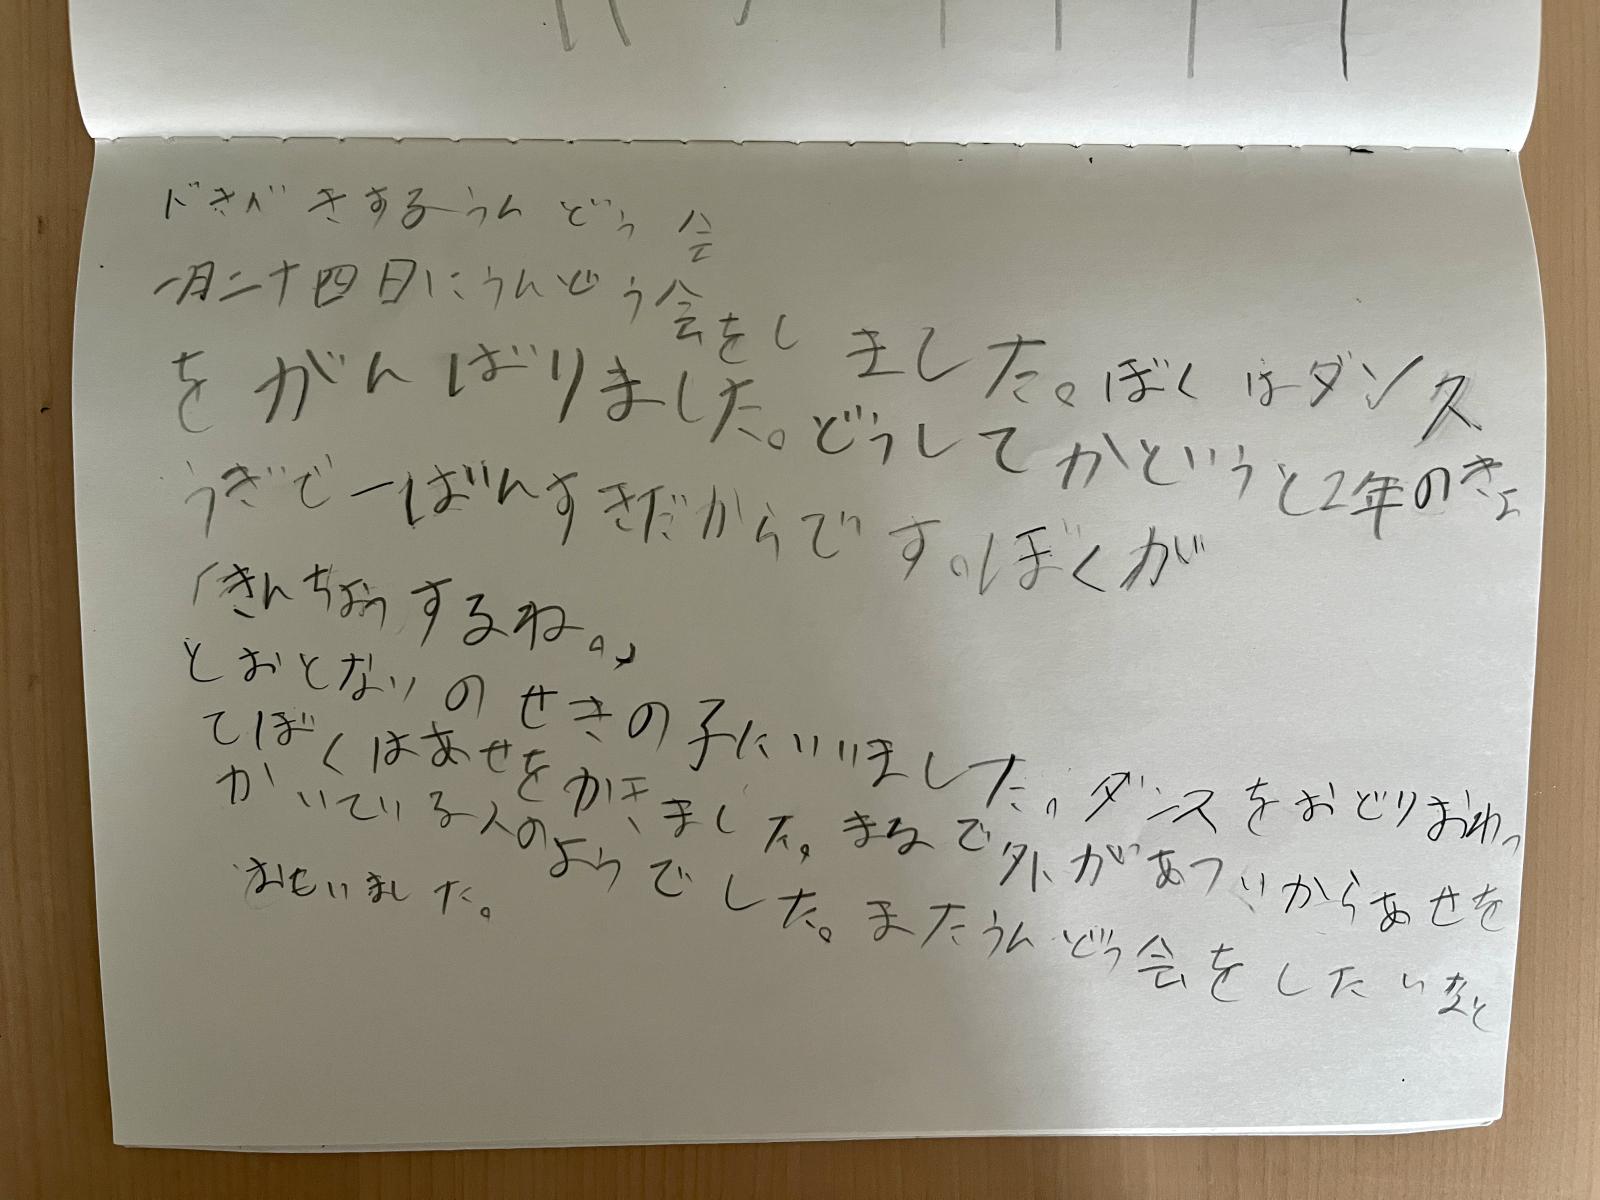 ドキドキするうんどう会
一月二十四日にうんどう会をしました。ぼくはダンス
をがんばりました。どうしてかというと2年のきょ
うぎで一ばんすきだからです。ぼくが
「きんちょうするね。」
とおとなりのせきの子にいいました。ダンスをおどりおわっ
てぼくはあせをかきました。まるで外があついからあせを
かいている人のようでした。またうんどう会をしたいなと
おもいました。